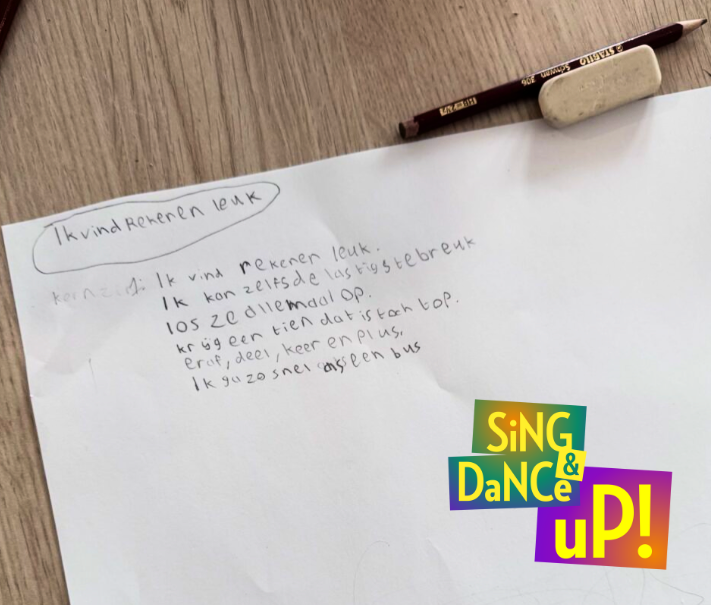 STABILO Schwan 306
Ik vind Rekenen leuk
kernzin: Ik vind rekenen leuk.
Ik kan zelfs de lastigste breuk
los ze allemaal op.
krijg een tien dat is toch top.
eraf, deel, keer en plus,
Ik ga zo snel als een bus
SiNG
&
DaNCe
uP!